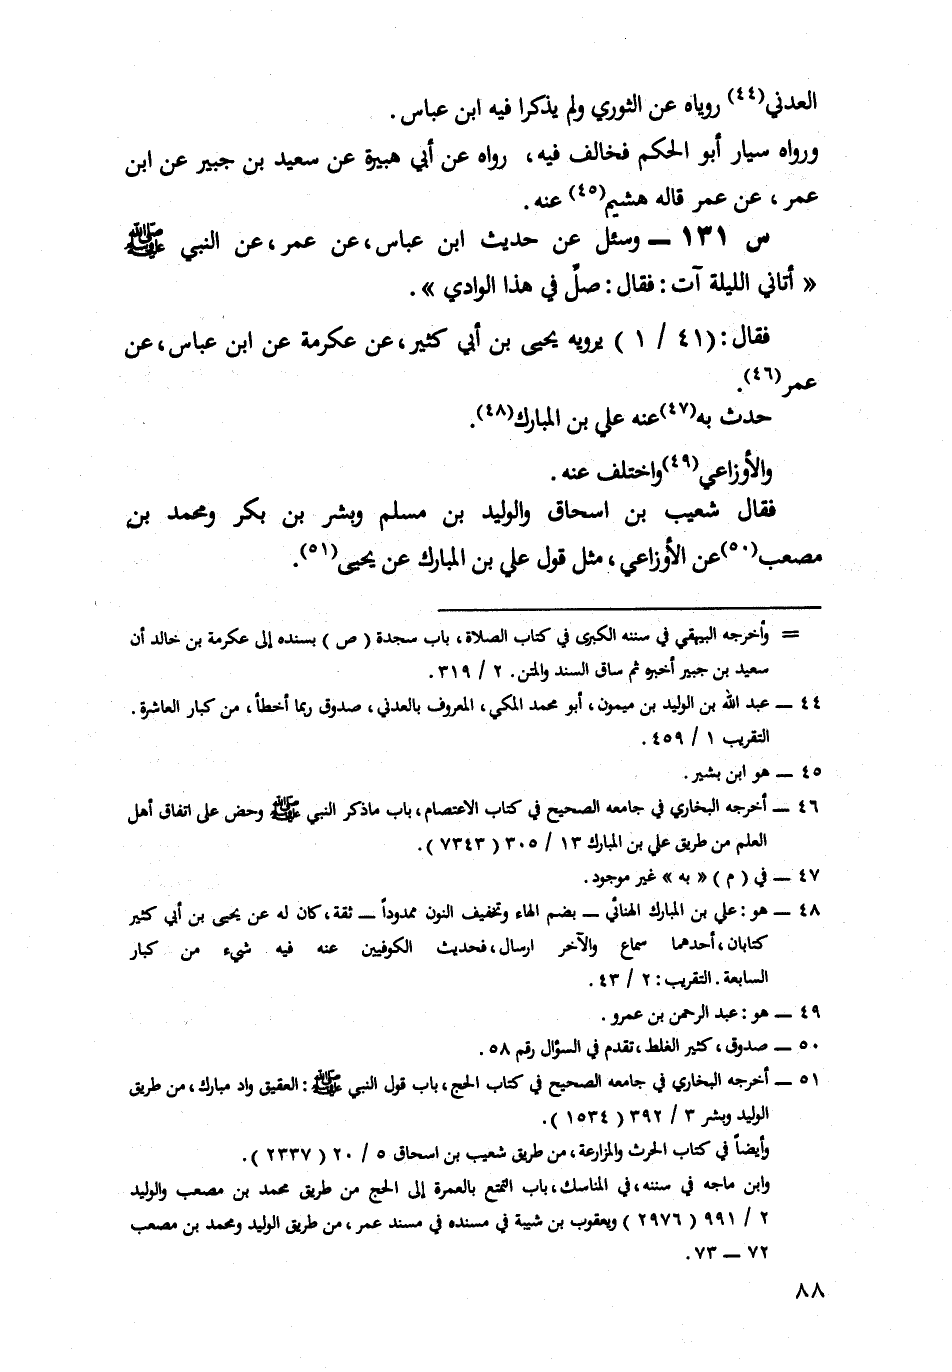 العدني(٤٤) روياه عن الثوري ولم يذكرا فيه ابن عباس.
ورواه سيار أبو الحكم فخالف فيه، رواه عن أبي هبيرة عن سعيد بن جبير عن ابن
عمر، عن عمر قاله هشيم(٤٥) عنه.
س ١٣١ ــ وسئل عن حديث ابن عباس، عن عمر، عن النبي ﷺ
« أتاني الليلة آت: فقال: صلِّ في هذا الوادي ».
فقال: (٤١ / ١ ) يرويه يحيى بن أبي كثير، عن عكرمة عن ابن عباس، عن
عمر(٤٦).
حدث به(٤٧) عنه علي بن المبارك(٤٨).
والأوزاعي(٤٩) واختلف عنه.
فقال شعيب بن اسحاق والوليد بن مسلم وبشر بن بكر ومحمد بن
مصعب(٥٠) عن الأوزاعي، مثل قول علي بن المبارك عن يحيى(٥١).
= وأخرجه البيهقي في سننه الكبرى في كتاب الصلاة، باب سجدة ( ص ) بسنده إلى عكرمة بن خالد أن
سعيد بن جبير أخبره ثم ساق السند والمتن. ٢ / ٣١٩.
٤٤ ــ عبد الله بن الوليد بن ميمون، أبو محمد المكي، المعروف بالعدني، صدوق ربما أخطأ، من كبار العاشرة.
التقريب ١ / ٤٥٩.
٤٥ ــ هو ابن بشير.
٤٦ ــ أخرجه البخاري في جامعه الصحيح في كتاب الاعتصام، باب ماذكر النبي ﷺ وحض على اتفاق أهل
العلم من طريق علي بن المبارك ١٣ / ٣٠٥ ( ٧٣٤٣ ).
٤٧ ــ في ( م ) « به » غير موجود.
٤٨ ــ هو: علي بن المبارك الهنائي ــ بضم الهاء وتخفيف النون ممدوداً ــ ثقة، كان له عن يحيى بن أبي كثير
كتابان، أحدهما سماع والآخر ارسال، فحديث الكوفيين عنه فيه شيء من كبار
السابعة. التقريب: ٢ / ٤٣.
٤٩ ــ هو: عبد الرحمن بن عمرو.
٥٠ ــ صدوق، كثير الغلط، تقدم في السؤال رقم ٥٨.
٥١ ــ أخرجه البخاري في جامعه الصحيح في كتاب الحج، باب قول النبي ﷺ: العقيق واد مبارك، من طريق
الوليد وبشر ٣ / ٣٩٢ ( ١٥٣٤ ).
وأيضاً في كتاب الحرث والمزارعة، من طريق شعيب بن اسحاق ٥ / ٢٠ ( ٢٣٣٧ ).
وابن ماجه في سننه، في المناسك، باب التمتع بالعمرة إلى الحج من طريق محمد بن مصعب والوليد
٢ / ٩٩١ ( ٢٩٧٦ ) ويعقوب بن شيبة في مسنده في مسند عمر، من طريق الوليد ومحمد بن مصعب
٧٢ ــ ٧٣.
٨٨